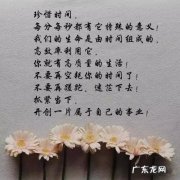 珍惜时间,
每分每秒都有它特殊的意义!
我们的生命是由时间组成的,
高效率利用它,
你就有高质量的生活!
不要再空耗你的时间了!
不要再猥琐、迷茫下去!
抓紧当下,
开创一片属于自己的事业!
广东龙网